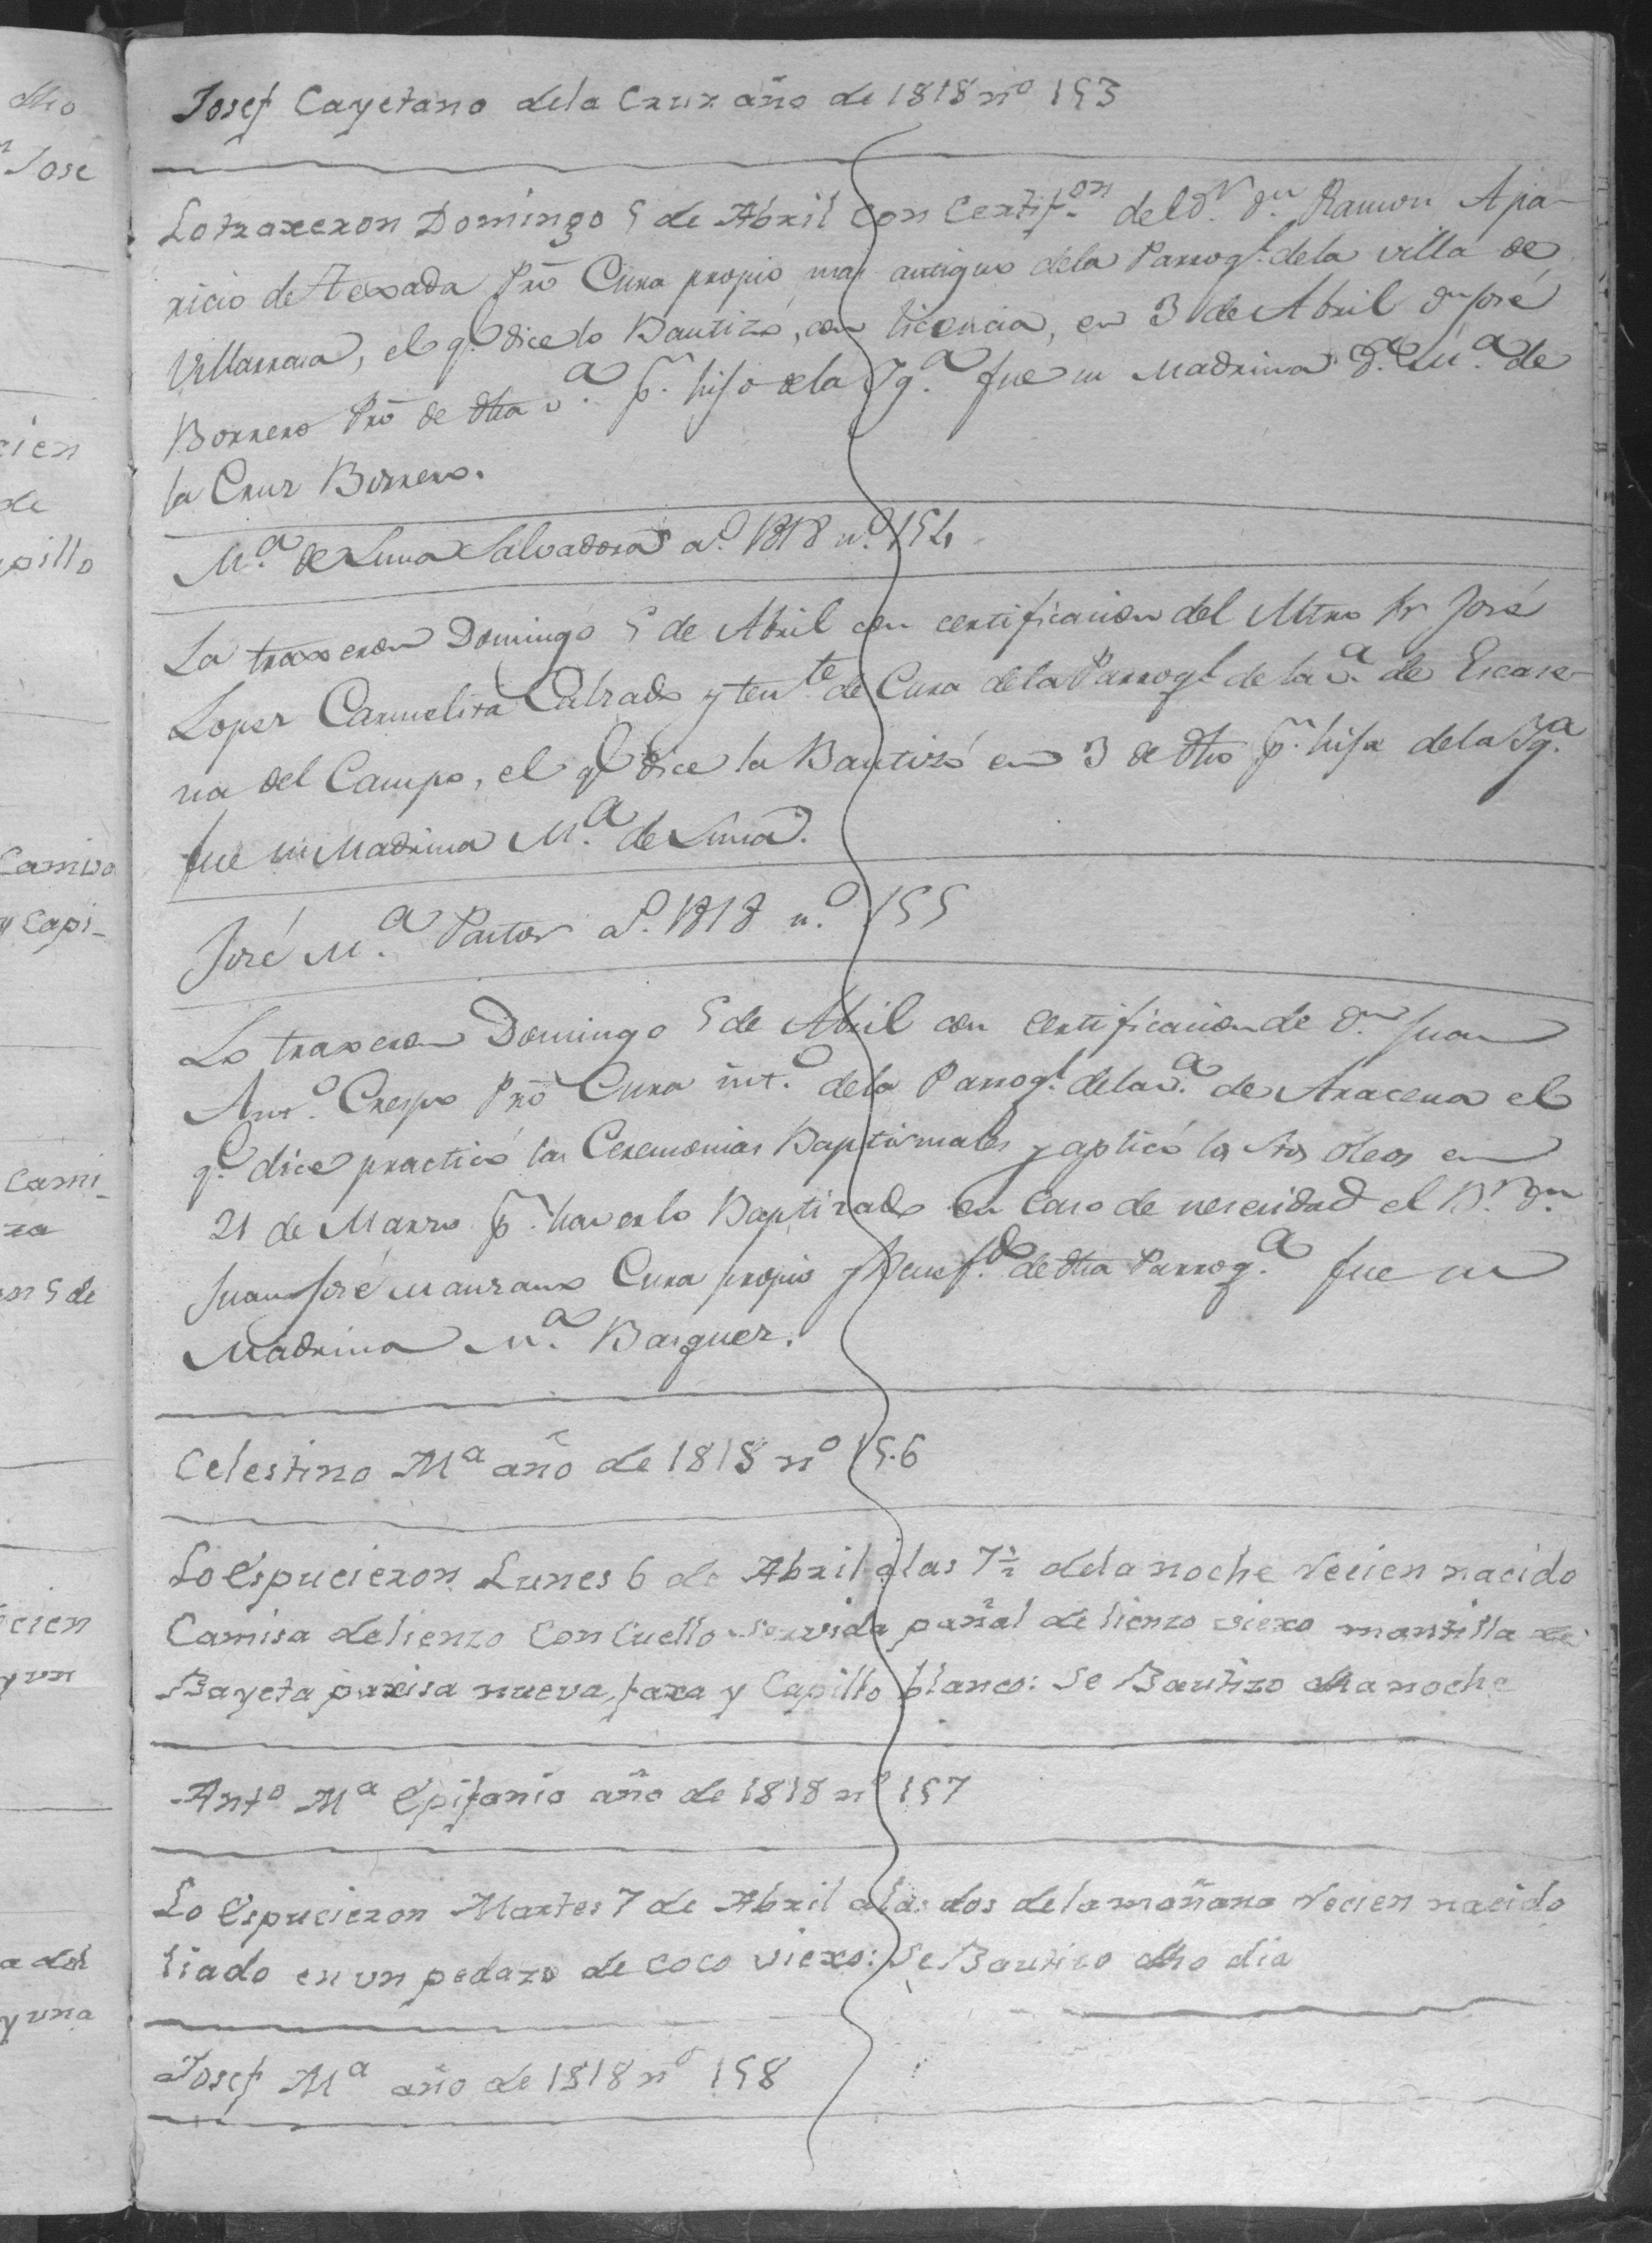 Josef Cayetano dela Cruz año de 1818 nº 153
Lo traxeron Domingo 5 de Abril con Certif.on del Dr. Dn. Ramon Apa-
ricio de Texada Pro Cura propio mas antiguo dela Parroql. dela villa de
Villarrasa, el q.e dice lo Bautizó, con licencia, en 3 de Abril Dn José
Borrero Pro de dha v.a pr. hijo dela Yg.a fue su Madrina D.a M.a de
la Cruz Borrero.
M.a de Luna Salvadora a.o 1818 n.o 154
La traxeron Domingo 5 de Abril con certificacion del Mtro Fr José
Lopez Carmelita Calzado y ten.te de Cura dela Parroql de la v.a de Escase-
na del Campo, el q.l dice la Bautizó en 3 de dho pr. hija dela Yg.a
fue su Madrina M.a de Luna.
José M.a Pastor a.o 1818 n.o 155
Lo traxeron Domingo 5 de Abril con certificacion de Dn Juan
Ant.o Crespo Pro Cura int.o dela Parroql. dela v.a de Aracena el
q.e dice practicó las Ceremonias Baptismales y aplicó los Stos oleos en
21 de Marzo pr. haverlo Baptizado en caso de necesidad el Br. Dn.
Juan José Manzano Cura propio y Benef.do de dha Parroq.a fue su
Madrina M.a Basquez.
Celestino Ma año de 1818 nº 156
Lo espucieron Lunes 6 de Abril alas 7½ dela noche recien nacido
Camisa de lienzo con Cuello servida pañal de lienzo viexo mantilla de
Bayeta parisa nueva, faxa y Capillo blanco: Se Bautizo dha noche
Anto Ma Epifanio año de 1818 nº 157
Lo espucieron Martes 7 de Abril alas dos dela mañana recien nacido
liado en un pedazo de coco viexo: Se Bautizo dho dia
Josef Ma año de 1818 nº 158